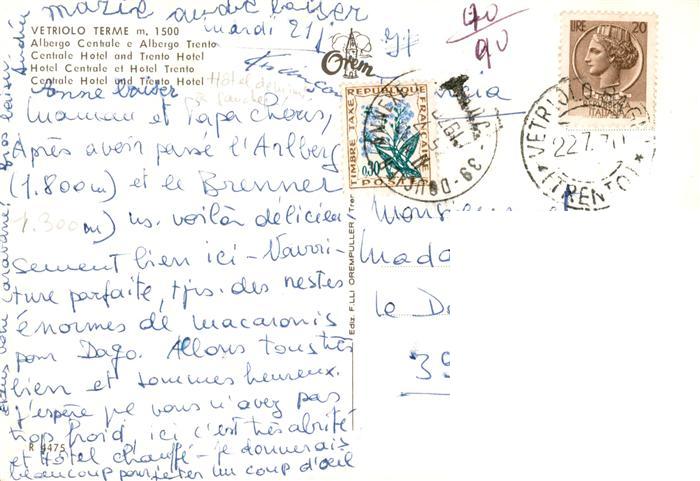 marie andré baiser
mardi 21/
VETRIOLO TERME m. 1500
Albergo Centrale e Albergo Trento
Centrale Hotel and Trento Hotel
Hotel Centrale et Hotel Trento
Centrale Hotel und Trento Hotel
Orem
70
90
LIRE 20
ITALIA
VETRIOLO
22.7.70
(TRENTO)
REPUBLIQUE FRANCAISE
TIMBRE TAXE
0,30
POSTES
39-
T
Hôtel
Bonne baiser
Maman et Papa chéris,
Après avoir passé l'Arlberg
(1.800m) et le Brenner
1.300m) ns. voilà délicieu
sement bien ici - Nourri-
ture parfaite, tjrs. des restes
énormes de macaronis
pour Dago. Allons tous très
bien et sommes heureux.
J'espère que vous n'avez pas
trop froid, ici c'est très abrité
et Hôtel chauffé - je donnerais
beaucoup pour jeter un coup d'oeil
dans votre caravane! Gros baisers
André
R 4475
Ediz. F.LLI OREMPULLER/Tren
Monsieur et
Mada
le D
39